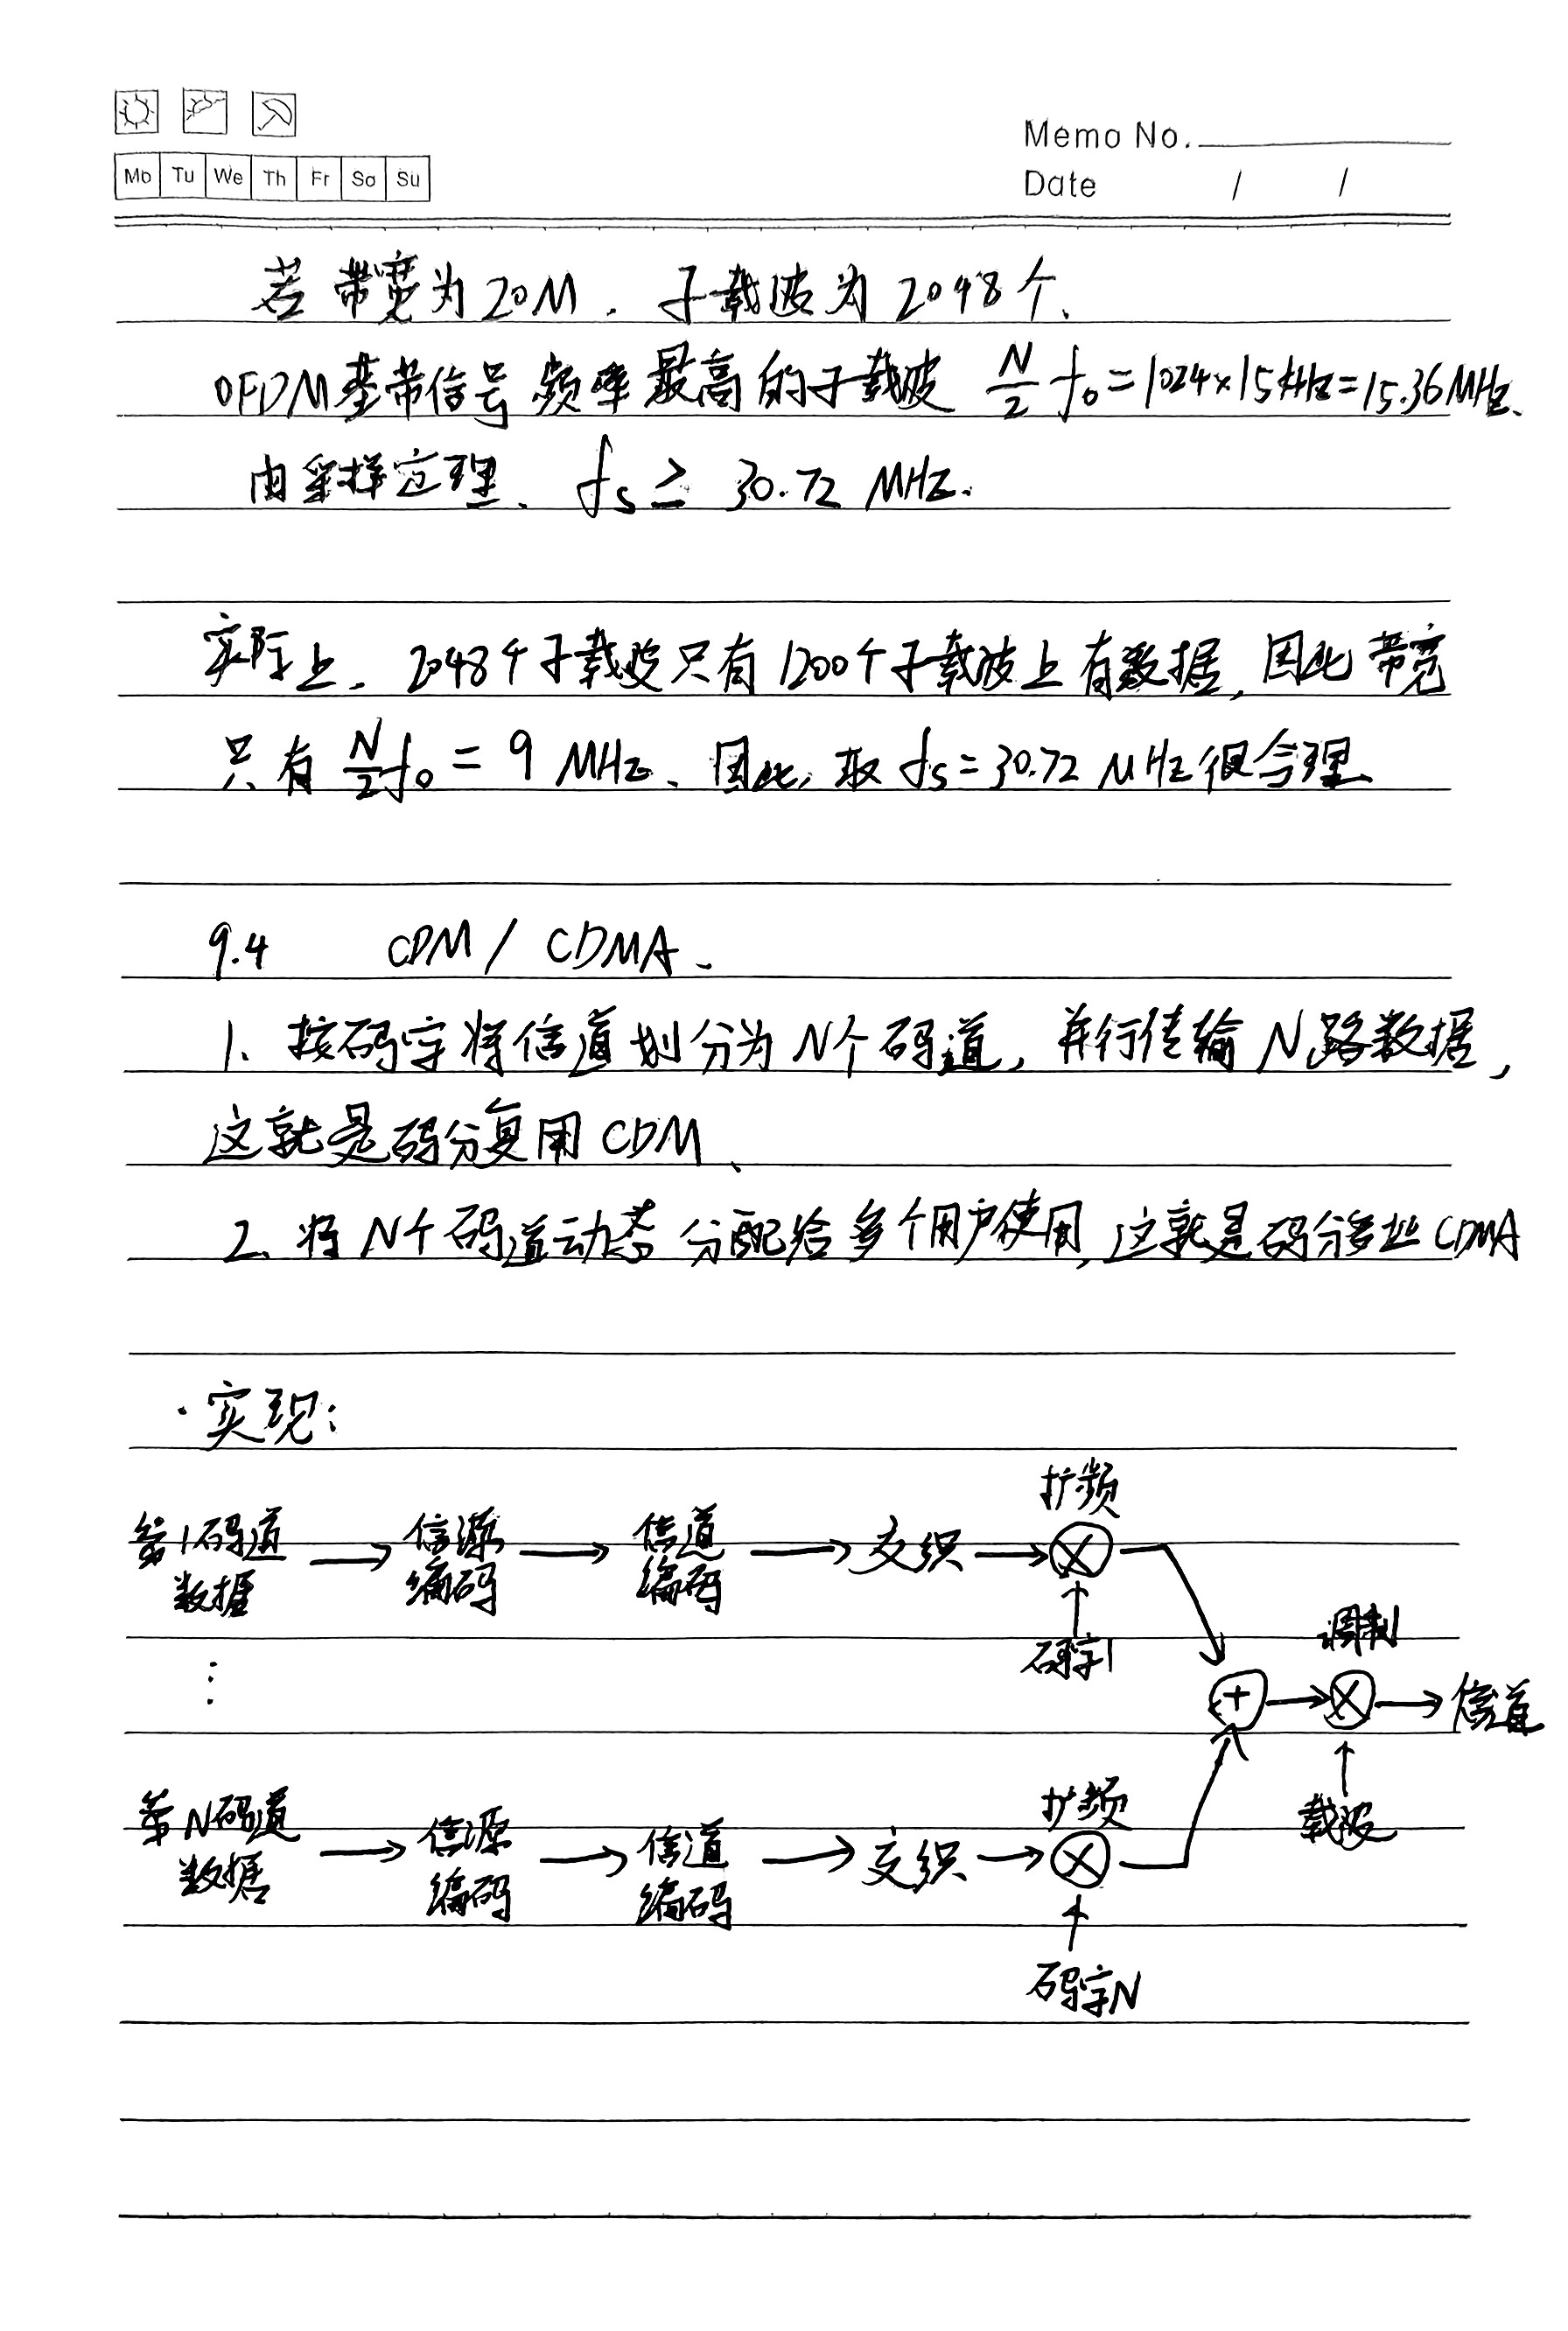 Memo No.
Mo Tu We Th Fr Sa Su
Date / /
若带宽为20M，子载波为2048个、
OFDM基带信号频率最高的子载波 N/2 f₀=1024×15kHz=15.36MHz、
由采样定理、fs ≥ 30.72 MHz.
实际上，2048个子载波只有1200个子载波上有数据，因此带宽
只有 N/2 f₀ = 9 MHz、因此，取 fs=30.72 MHz很合理、
9.4 CDM / CDMA、
1、按码字将信道划分为N个码道，并行传输N路数据，
这就是码分复用CDM、
2、将N个码道动态分配给多个用户使用，这就是码分多址CDMA
·实现：
扩频
第1码道 → 信源 → 信道 → 交织 → ⊗
数据 编码 编码
码字1
调制
⋮
+ → ⊗ → 信道
载波
扩频
第N码道 → 信源 → 信道 → 交织 → ⊗
数据 编码 编码
码字N